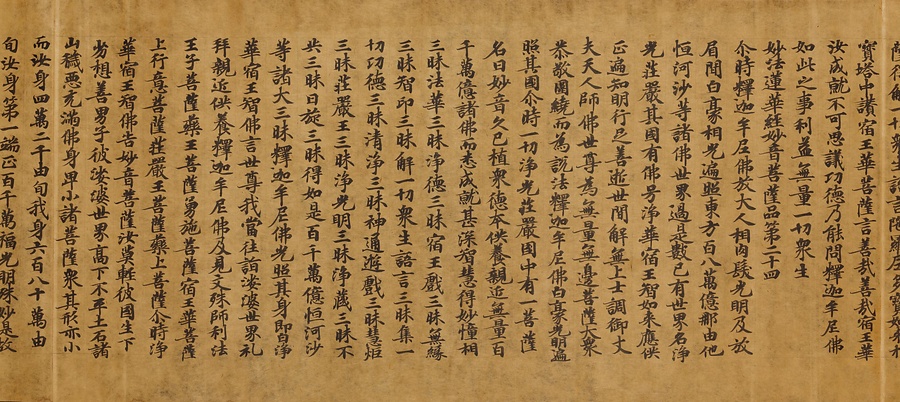 寶塔中讃宿王華菩薩言善哉善哉宿王華
汝成就不可思議功德乃能問釋迦牟尼佛
如此之事利益無量一切衆生
妙法蓮華經妙音菩薩品第二十四
尒時釋迦牟尼佛放大人相肉髻光明及放
眉間白豪相光遍照東方百八萬億那由他
恒河沙等諸佛世界過是數已有世界名淨
光莊嚴其國有佛号淨華宿王智如來應供
正遍知明行足善逝世間解無上士調御丈
夫天人師佛世尊為無量無邊菩薩大衆
恭敬圍繞而為說法釋迦牟尼佛白豪光明遍
照其國尒時一切淨光莊嚴國中有一菩薩
名曰妙音久已植衆德本供養親近無量百
千萬億諸佛而悉成就甚深智慧得妙幢相
三昧法華三昧淨德三昧宿王戲三昧無緣
三昧智印三昧解一切衆生語言三昧集一
切功德三昧清淨三昧神通遊戲三昧慧炬
三昧莊嚴王三昧淨光明三昧淨藏三昧不
共三昧日旋三昧得如是百千萬億恒河沙
等諸大三昧釋迦牟尼佛光照其身即白淨
華宿王智佛言世尊我當往詣娑婆世界礼
拜親近供養釋迦牟尼佛及見文殊師利法
王子菩薩藥王菩薩勇施菩薩宿王華菩薩
上行意菩薩莊嚴王菩薩藥上菩薩尒時淨
華宿王智佛告妙音菩薩汝莫輕彼國生下
劣想善男子彼娑婆世界高下不平土石諸
山穢惡充滿佛身卑小諸菩薩衆其形亦小
而汝身四萬二千由旬我身六百八十萬由
旬汝身第一端正百千萬福光明殊妙是故